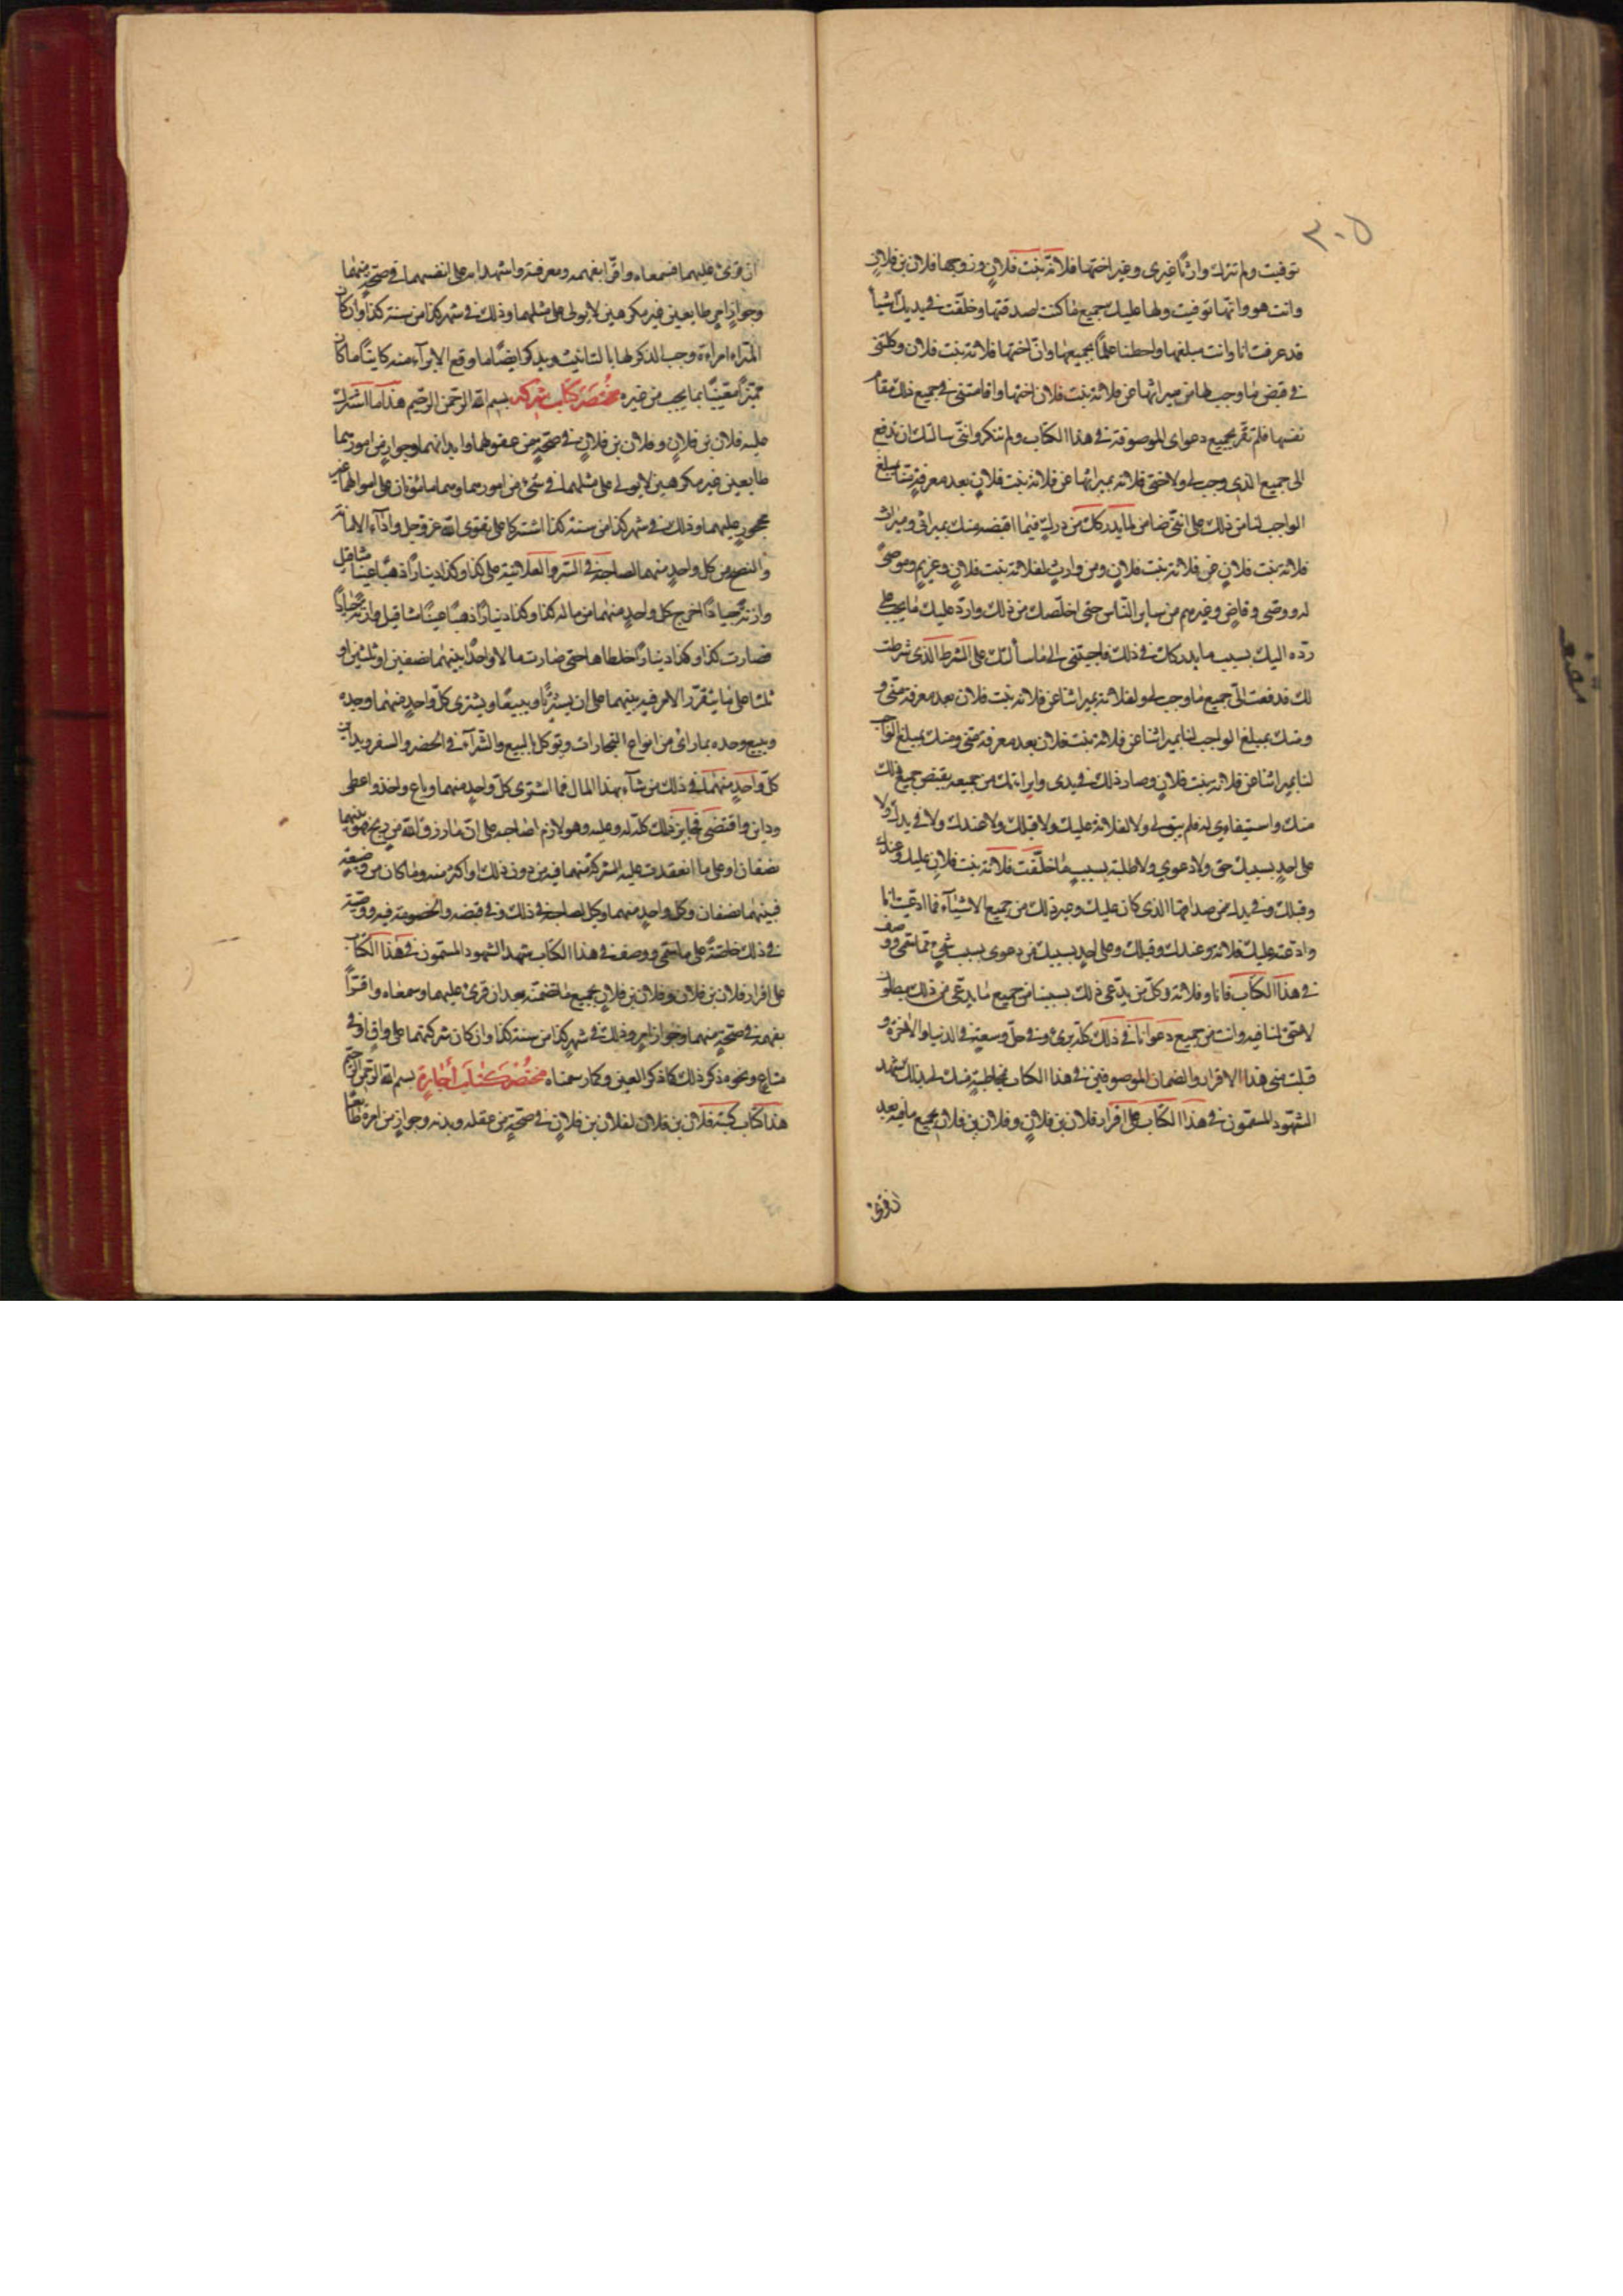 ٣٠٥
توفيت ولم تترك وارثًا غيري وغير اختها فلانة بنت فلانٍ وزوجها فلان بن فلانٍ
وانت هو وانها توفيت ولها عليك جميع ما كنت اصدقتها وخلّفت في يديك اشياء
قد عرفت انا وانت مبلغها واحطنا علمًا بجميعها وانّ اختها فلانة بنت فلان وكلتنى
في قبض ما وجب لها من ميراثها عن فلانة بنت فلان اختها واقامتنى في جميع ذلك مقام
نفسها فلم تقر بجميع دعواى الموصوفة في هذا الكتاب ولم تنكر وانّى سالتك ان تدفع
الى جميع الذى وجب لى ولاختى فلانة بميراثها عن فلانة بنت فلانٍ بعد معرفةٍ منّا بمبلغ
الواجب لنا من ذلك على انّنى ضامن لما يدركك من دركٍ فيما اقبضه منك بميراثى وميراث
فلانة بنت فلانٍ عن فلانة بنت فلانٍ ومن وارثٍ لفلانة بنت فلانٍ وغريمٍ وموصىً
له ووصى وقاضٍ وغيرهم من ساير النّاس حتى اخلّصك من ذلك واردّ عليك ما يجب على
ردّه اليك بسبب ما يدركك في ذلك فاجبتنى الى ما سألتك على الشرط الذى شرطت
لك فدفعت الىّ جميع ما وجب لى ولفلانة بميراثنا عن فلانة بنت فلان بعد معرفة منّى و
ومنك بمبلغ الواجب لنا بميراثنا عن فلانة بنت فلان بعد معرفة منّى ومنك بمبلغ الواجب
لنا بميراثنا عن فلانة بنت فلانٍ وصار ذلك في يدى وابراءتك من جميعه بقبض جميع ذلك
منك واستيفاءى له فلم يبق لى ولا لفلانة عليك ولا قبلك ولا عندك ولا في يدك ولا
على احدٍ بسببك حق ولا دعوي ولا طلبة بسبب ما خلّفت فلانة بنت فلانٍ عليك وعندك
وقبلك وفي يدك من صداقها الذى كان عليك وغير ذلك من جميع الاشيآء فما ادعيت انا
وادعته عليك فلانة وعندك وقبلك وعلى احدٍ بسببك من دعوى بسبب شئٍ ممّا سمّى ووصف
في هذا الكتاب فانا وفلانة وكلّ من يدّعى ذلك بسببنا من جميع ما يدعى من ذلك مبطلون
لا حقّ لنا فيه وانت من جميع دعوانا في ذلك كلّه برئ وفي حلّ وسعةٍ في الدنيا والاخرة و
قبلت منى هذا الاقرار والضمان الموصوفين في هذا الكتاب بمخاطبةٍ منك لى بذلك شهد
الشهود المسمّون في هذا الكتاب على اقرار فلان بن فلانٍ وفلان بن فلانٍ بجميع ما فيه بعد
ان قرئ
ان قرئ عليهما فسمعاه واقرّا بفهمه ومعرفته واشهدا به على انفسهما في صحّةٍ منهما
وجواز امرٍ طايعين غير مكرهين لا يولى على مثلهما وذلك في شهر كذا من سنة كذا وان كان
امراءة وجب الذكر لها بالتانيث ويذكر ايضًا ما وقع الابرآء منه كاينًا ما كان
مميّزًا معّينًا بما يجب من غيره مختصر كتاب شركة بسم الله الرحمن الرحيم هذا ما اشترك
عليه فلان بن فلانٍ وفلان بن فلانٍ في صحّةٍ من عقولهما وابدانهما وجوازٍ من امورهما
طايعين غير مكرهين لا يولى على مثلهما في شئ من امورهما وهما مامونان على اموالهما غير
محجورٍ عليهما وذلك في شهر كذا من سنة كذا اشتركا على تقوى الله عز وجل واداء الامانة
والنصح من كل واحدٍ منهما لصاحبه في السّر والعلانية على كذا وكذا دينارًا ذهبًا عينًا مثاقيل
وازنةً جيادًا اخرج كل واحدٍ منهما من ماله كذا وكذا دينارًا ذهبًا عينًا مثاقيل وازنة جيادًا
فصارت كذا وكذا دينارًا خلطاها حتى صارت مالا واحدًا بينهما نصفين او ثلثين او
ثلثا على ما يتقرّر الامر فيه بينهما على ان يشتريا ويبيعا ويشترى كلّ واحدٍ منهما وحده
ويبيع وحده بما رأى من انواع التجارات ويوكل بالبيع والشّرآء في الحضر والسفر ويداين
كلّ واحدٍ منهما في ذلك من شآء بهذا المال فما اشترى كلّ واحدٍ منهما وباع واخذ واعطى
وداين واقتضى فجايز ذلك كلّه له وعليه وهو لازم لصاحبه على انّ ما رزق الله من ربحٍ فهو بينهما
نصفان او على ما انعقدت عليه الشركة بينهما فيه من دون ذلك او اكثر منه وما كان من وضيعةٍ
فبينهما نصفان وكل واحدٍ منهما وكيل لصاحبه في ذلك وفي قبضه والخصومة فيه ووصيّه
في ذلك خاصّةً على ما سمّى ووصف في هذا الكتاب شهد الشهود المسمّون في هذا الكتاب
على اقرار فلان بن فلان وفلان بن فلانٍ بجميع ما تضمنّه بعد ان قرئ عليهما وسمعاه واقرّا
بفهمه في صحّةٍ منهما وجواز امرٍ وذلك في شهر كذا من سنة كذا وان كان شركتهما على
مشاع ونحوه ذكر ذلك كما ذكر العين وكما رسمناه مختصر كتاب اجارةٍ بسم الله الرحمن الرحيم
هذا كتاب كتبه فلان بن فلان لفلان بن فلانٍ في صحّةٍ من عقله وبدنه وجوازٍ من امره طايعًا